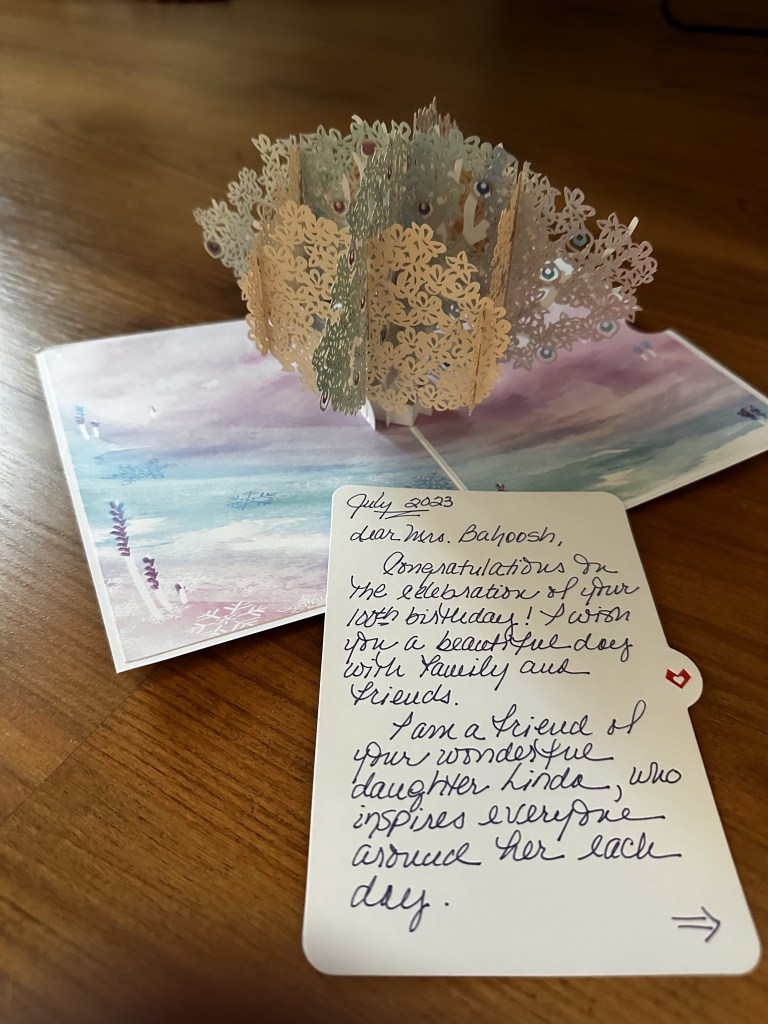 July 2023
dear Mrs. Bahoosh,
Congratulations on
the celebration of your
100th birthday! I wish
you a beautiful day
with family and
friends.
I am a friend of
your wonderful
daughter Linda, who
inspires everyone
around her each
day.
⇒